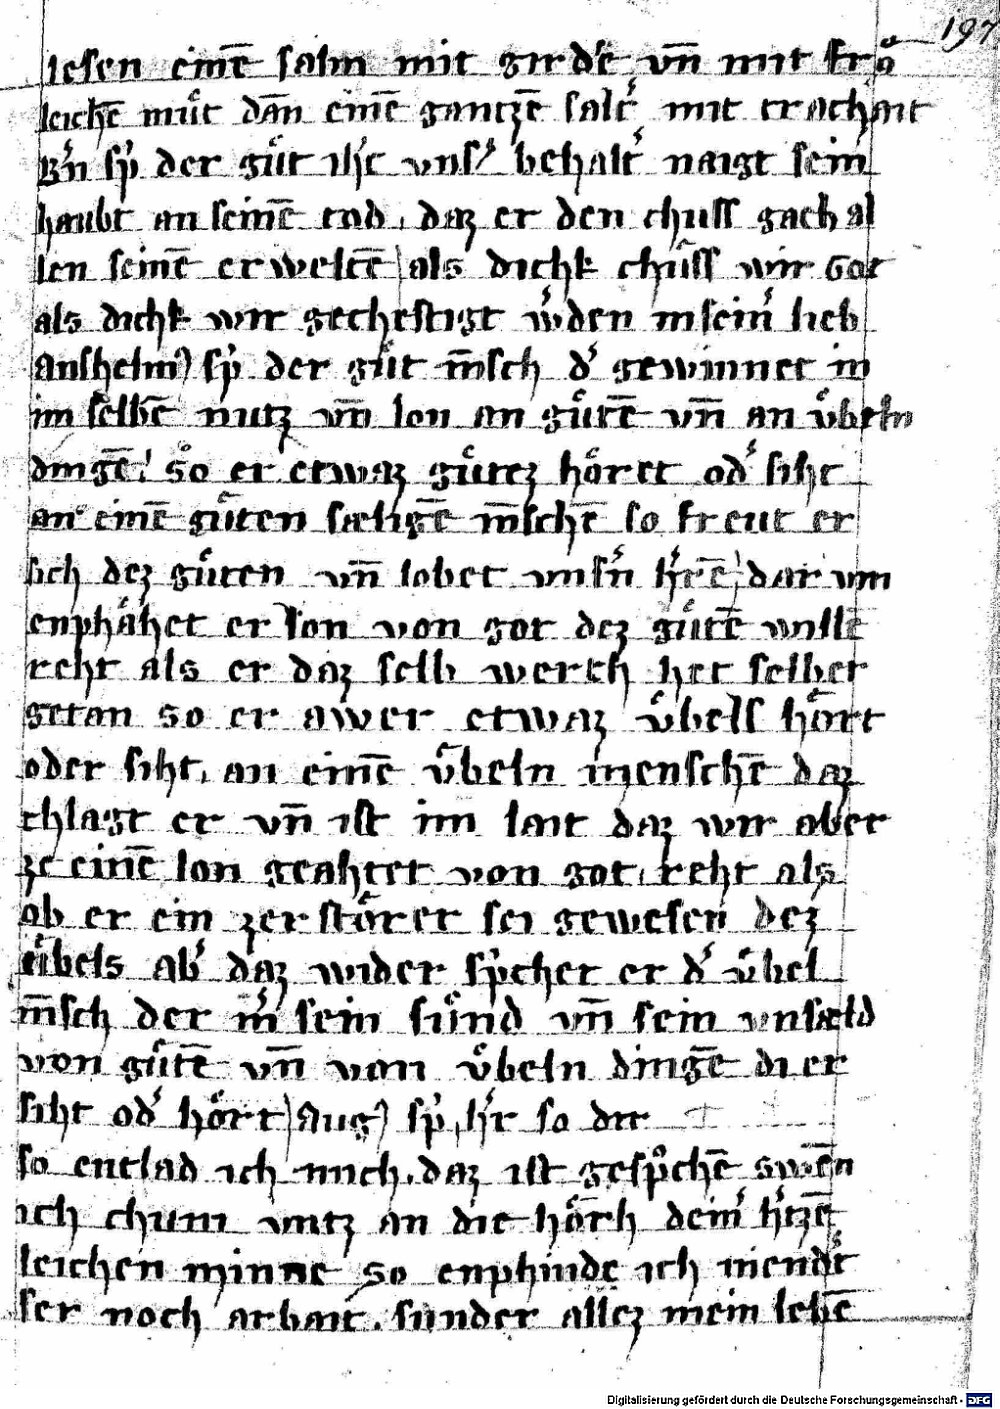 197
lesen einē salm mit gird'e vn̄ mit frö
leichē müt dān einē gantzē salt' mit trachait
B'n sp' der güt ih̄c vns' behalt' naigt sein
haubt an seinē tod, daz er den chuss gach al
len seinē erweltē als dichk chüss wir Got
als dichk wir gechestigt w'den in sein' lieb
Anshelm) sp' der güt m̄sch d' gewinnet in
im selbē nutz vn̄ lon an gütē vn̄ an v̈beln
dingē! so er etwaz gütez höret od' siht
an einē güten sæligē m̄schē so freut er
sich dez güten vn̄ lobet vns'n h'rē dar vm
enphähet er lon von got dez gütē willē
reht als er daz selb werch het selber
getan so er awer etwaz v̈bels hört
oder siht, an einē v̈beln menschē daz
chlagt er vn̄ ist im lait daz wir aber
ze einē lon geahtet von got, reht als
ob er ein zerstörer sei gewesen dez
übels ab' daz widersp'chet er d' v̈bel
m̄sch der m' sein sünd vn̄ sein vnsæld
von gütē vn̄ von v̈beln dingē di er
siht od' hört) Aug) sp', h'r so dir
so entlad ich mich, daz ist gesp°chē swēn
ich chum vntz an die hörh dein' h'tzē
leichen minne so enphinde ich niend't
ser noch arbait. sunder allez mein lebē
Digitalisierung gefördert durch die Deutsche Forschungsgemeinschaft - DFG